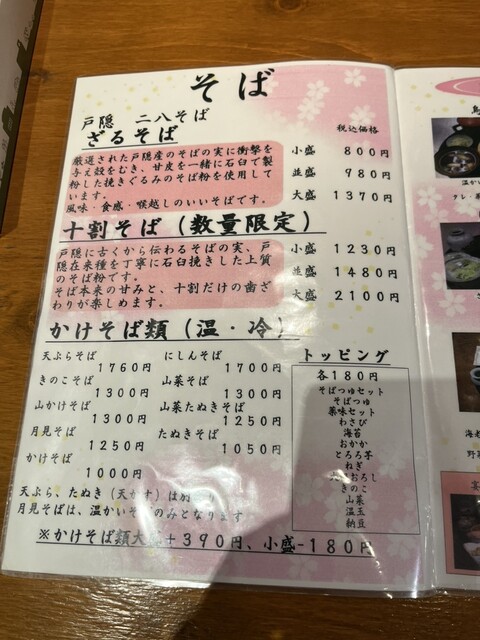 そば
戸隠 二八そば
ざるそば
税込価格
厳選された戸隠産のそばの実に衝撃を
与え殻をむき、甘皮を一緒に石臼で製
粉した挽きぐるみのそば粉を使用して
います。
風味・食感・喉越しのいいそばです。
小盛 800円
並盛 980円
大盛 1370円
十割そば(数量限定)
戸隠に古くから伝わるそばの実、戸
隠在来種を丁寧に石臼挽きした上質
のそば粉です。
そば本来の甘みと、十割だけの歯ざ
わりが楽しめます。
小盛 1230円
並盛 1480円
大盛 2100円
かけそば類(温・冷)
天ぷらそば
1760円
きのこそば
1300円
山かけそば
1300円
月見そば
1250円
かけそば
1000円
にしんそば
1700円
山菜そば
1300円
山菜たぬきそば
1250円
たぬきそば
1050円
トッピング
各180円
そばつゆセット
そばつゆ
薬味セット
わさび
海苔
おかか
とろろ芋
ねぎ
おろし
きのこ
山菜
温玉
納豆
天ぷら、たぬき(天かす)は別
月見そばは、温かいそばのみとなります
※かけそば類大盛+390円、小盛-180円